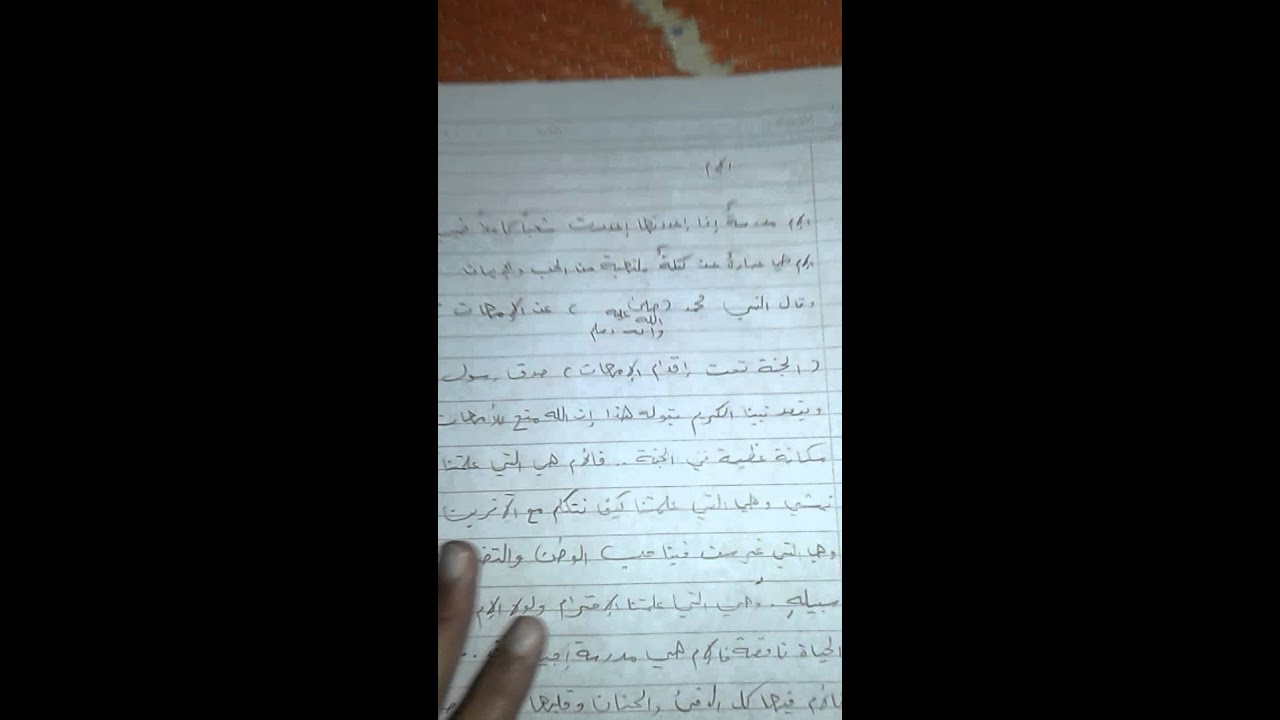 الام
الام مدرسةٌ إذا إعددتها إعددت شعباً
الام هي عبارة عن كتلةٌ ملتهبة من الحب والإيمان
وقال النبي محمد (صلى الله عليه وآله وسلم) عن الإمهات
(الجنة تحت إقدام الإمهات) صدق رسول
ويقصد نبينا الكريم بقوله هذا إن الله منح للأمهات
مكانة عظيمة في الجنة .. فالأم هي التي علمتنا
نمشي وهي التي علمتنا كيف نتكلم مع الآخرين
وهي التي غرست فينا حب الوطن
سبيله .. وهي التي علمتنا الإحترام ولولا الإم
الحياة ناقصة فالام هي مدرسة
فالأم فيها كل الدفئ والحنان وقلبها